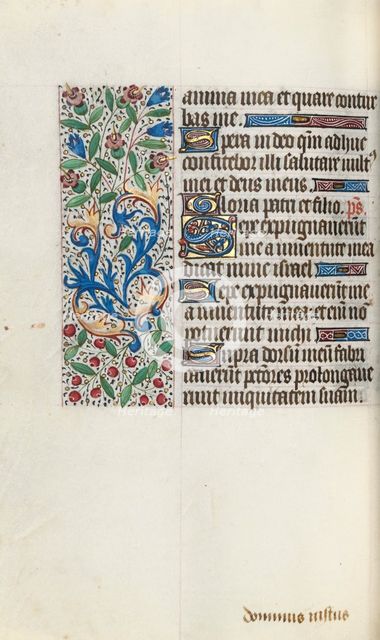 anima mea et quare contur
bas me
Spera in deo qm adhuc
confitebor illi salutare vult⁹
mei et deus meus
Gloria patri et filio ps̄
Sepe expugnauerūt
me a iuuentute mea
dicat nunc israel
Sepe expugnauerūt me
a iuuentute mea eteni no
potuerunt michi
Supra dorsū meū fabri
cauerūt pctōres prolongaue
runt iniquitatem suam.
dominus iustus
Heritage Heritage